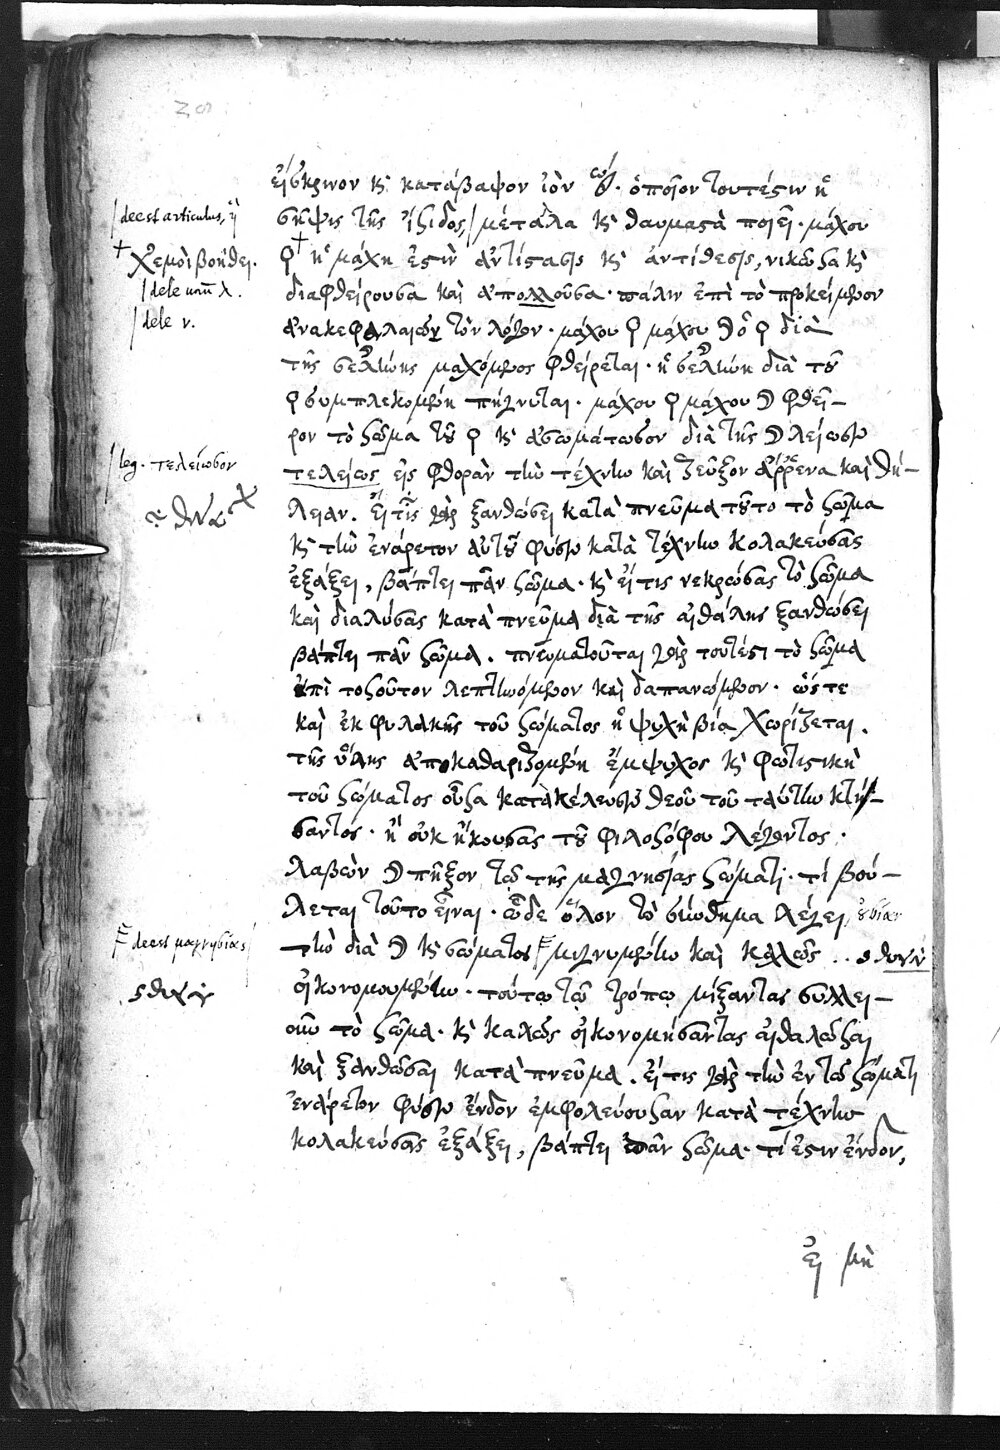 εἴσκρινον κ κατάβαψον ἰὸν. ὁποῖον τουτέστιν ἡ
σῆψις τῆς ἰξίδος, μέταλα κ θαυμαστὰ ποιεῖ. μάχου
ἡ μάχη ἐστὶν ἀντίστασις κ ἀντίθεσις, νικῶσα κ
διαφθείρουσα καὶ ἀπολλοῦσα. πάλιν ἐπὶ τὸ προκείμενον
ἀνακεφαλαιῶν τὸν λόγον. μάχου μάχου ὁ διὰ
τῆς σελήνης μαχόμενος φθείρεται. ἡ σελήνη διὰ τοῦ
συμπλεκομένη πήγνυται. μάχου μάχου φθεῖ-
ρον τὸ σῶμα τοῦ κ ἀσωμάτωσον διὰ τῆς λειώσεως
τελείως εἰς φθορὰν τὴν τέχνην καὶ ζεῦξον ἄρρενα καὶ θή-
λειαν. εἴ τις γὰρ ξανθώσει κατὰ πνεῦμα τοῦτο τὸ σῶμα
κ τὴν ἐνάρετον αὐτοῦ φύσιν κατὰ τέχνην κολακεύσας
ἐξάξει, βάπτει πᾶν σῶμα. κ εἴ τις νεκρώσας τὸ σῶμα
καὶ διαλύσας κατὰ πνεῦμα διὰ τῆς αἰθάλης ξανθώσει
βάπτει πᾶν σῶμα. πνευματοῦται γὰρ τουτέστι τὸ σῶμα
ἐπὶ τοσοῦτον λεπτυνόμενον καὶ δαπανώμενον. ὥστε
καὶ ἐκ φυλακῆς τοῦ σώματος ἡ ψυχὴ βίᾳ χωρίζεται.
τῆς ὕλης ἀποκαθαριζομένη ἔμψυχος κ φωτιστικὴ
τοῦ σώματος οὖσα κατὰ κέλευσιν θεοῦ τοῦ ταύτην κτή-
σαντος. ἢ οὐκ ἤκουσας τοῦ φιλοσόφου λέγοντος.
λαβὼν πῆξον τῷ τῆς μαγνησίας σώματι. τί βού-
λεται τοῦτο εἶναι. ὧδε ὅλον τὸ σύνθημα λέγει, οὐσίαν
τὴν διὰ κ σώματος μιγνυμένην καὶ καλῶς
οἰκονομουμένην. τούτῳ τῷ τρόπῳ μίξαντας συλλει-
οῦν τὸ σῶμα. κ καλῶς οἰκονομήσαντας αἰθαλῶσαι
καὶ ξανθῶσαι κατὰ πνεῦμα. εἴ τις γὰρ τὴν ἐν τῷ σώματι
ἐνάρετον φύσιν ἔνδον ἐμφολεύουσαν κατὰ τέχνην
κολακεύσας ἐξάξει, βάπτει πᾶν σῶμα. τί ἐστιν ἔνδον,
εἰ μὴ
deest articulus, ἡ
χεμοὶ βοήθει.
dele unum λ.
dele ν.
leg. τελείωσον
deest μαγνησίας